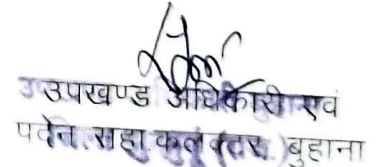 उपखण्ड अधिकारी एवं
पदेन सहा. कलक्टर, बुहाना